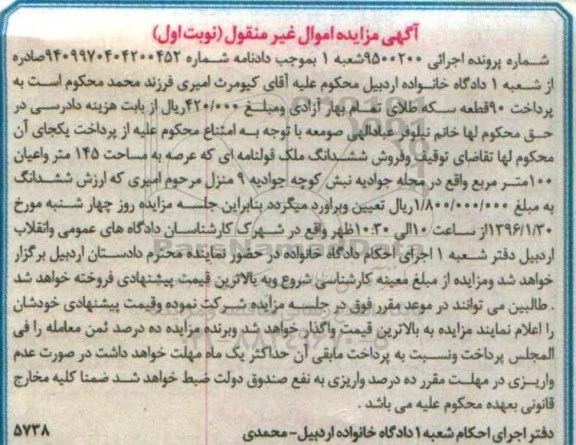 آگهی مزایده اموال غیر منقول (نوبت اول)
شماره پرونده اجرائی ۹۵۰۰۲۰۰ شعبه ۱ بموجب دادنامه شماره ۹۴۰۹۹۷۰۴۰۴۲۰۰۴۵۲ صادره
از شعبه ۱ دادگاه خانواده اردبیل محکوم علیه آقای کیومرث امیری فرزند محمد محکوم است به
پرداخت ۹۰ قطعه سکه طلای تمام بهار آزادی ومبلغ ۴۲۰/۰۰۰ ریال از بابت هزینه دادرسی در
حق محکوم لها خانم نیلوفر عبادالهی صومعه با توجه به امتناع محکوم علیه از پرداخت یکجای آن
محکوم لها تقاضای توقیف وفروش ششدانگ ملک قولنامه ای که عرصه به مساحت ۱۴۵ متر واعیان
۱۰۰ متر مربع واقع در محله جوادیه نبش کوچه جوادیه ۹ منزل مرحوم امیری که ارزش ششدانگ
به مبلغ ۱/۸۰۰/۰۰۰/۰۰۰ ریال تعیین وبراورد میگردد بنابراین جلسه مزایده روز چهار شنبه مورخ
۱۳۹۶/۱/۳۰ از ساعت ۱۰ الی ۱۰:۳۰ ظهر واقع در شهرک کارشناسان دادگاه های عمومی وانقلاب
اردبیل دفتر شعبه ۱ اجرای احکام دادگاه خانواده در حضور نماینده محترم دادستان اردبیل برگزار
خواهد شد ومزایده از مبلغ معینه کارشناسی شروع وبه بالاترین قیمت پیشنهادی فروخته خواهد شد
. طالبین می توانند در موعد مقرر فوق در جلسه مزایده شرکت نموده وقیمت پیشنهادی خودشان
را اعلام نمایند مزایده به بالاترین قیمت واگذار خواهد شد وبرنده مزایده ده درصد ثمن معامله را فی
المجلس پرداخت ونسبت به پرداخت مابقی آن حداکثر یک ماه مهلت خواهد داشت در صورت عدم
واریزی در مهلت مقرر ده درصد واریزی به نفع صندوق دولت ضبط خواهد شد ضمنا کلیه مخارج
قانونی بعهده محکوم علیه می باشد .
دفتر اجرای احکام شعبه ۱ دادگاه خانواده اردبیل- محمدی ۵۷۳۸